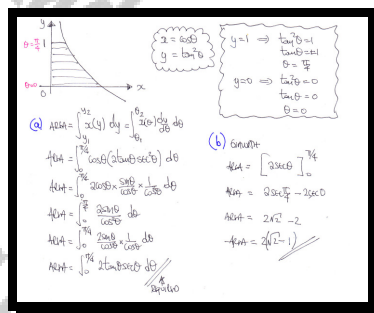 y
θ=π/4
1
θ=0
0
x
x = cosθ
y = tan²θ
y=1 ⇒ tan²θ=1
tanθ=±1
θ=π/4
y=0 ⇒ tan²θ=0
tanθ=0
θ=0
(a) AREA = ∫_{y₁}^{y₂} x(y) dy = ∫_{θ₁}^{θ₂} x(θ) dy/dθ dθ
AREA = ∫₀^{π/4} cosθ(2tanθsec²θ) dθ
AREA = ∫₀^{π/4} 2cosθ × sinθ/cosθ × 1/cos²θ dθ
AREA = ∫₀^{π/4} 2sinθ/cos²θ dθ
AREA = ∫₀^{π/4} 2sinθ/cosθ × 1/cosθ dθ
AREA = ∫₀^{π/4} 2tanθsecθ dθ
As
REQUIRED
(b)
AREA = [2secθ]₀^{π/4}
AREA = 2secπ/4 - 2sec0
AREA = 2√2 - 2
AREA = 2(√2 - 1)